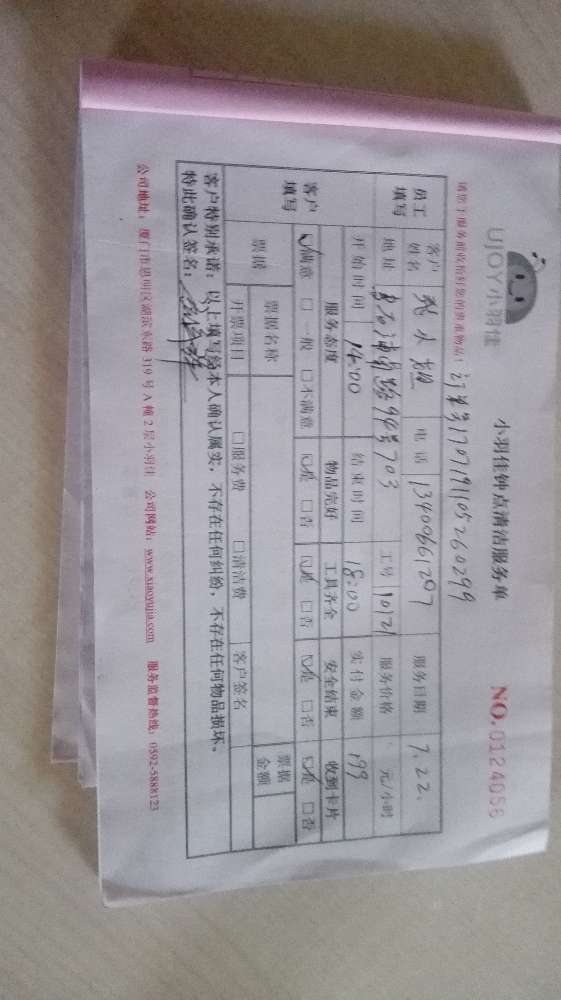 UJOY小羽佳
小羽佳钟点清洁服务单
NO.0124056
请您于服务前收拾好您的贵重物品！
订单号170719110526 0299
员工填写 客户姓名 电话 13400661207 服务日期 7.22.
地址 94号703 工号 10121 服务价格 元/小时
开始时间 14:00 结束时间 18:00 实付金额 199
客户填写 服务态度 物品完好 工具齐全 安全结束 收到卡片
☑满意 □一般 □不满意 ☑是 □否 ☑是 □否 ☑是 □否 ☑是 □否
票据 票据名称 票据金额
开票项目 □服务费 □清洁费 客户签名
客户特别承诺：以上填写经本人确认属实，不存在任何纠纷，不存在任何物品损坏。
特此确认签名：
公司地址：厦门市思明区湖滨东路319号A幢2层小羽佳 公司网站：www.xiaoyujia.com 服务监督热线：0592-5888123